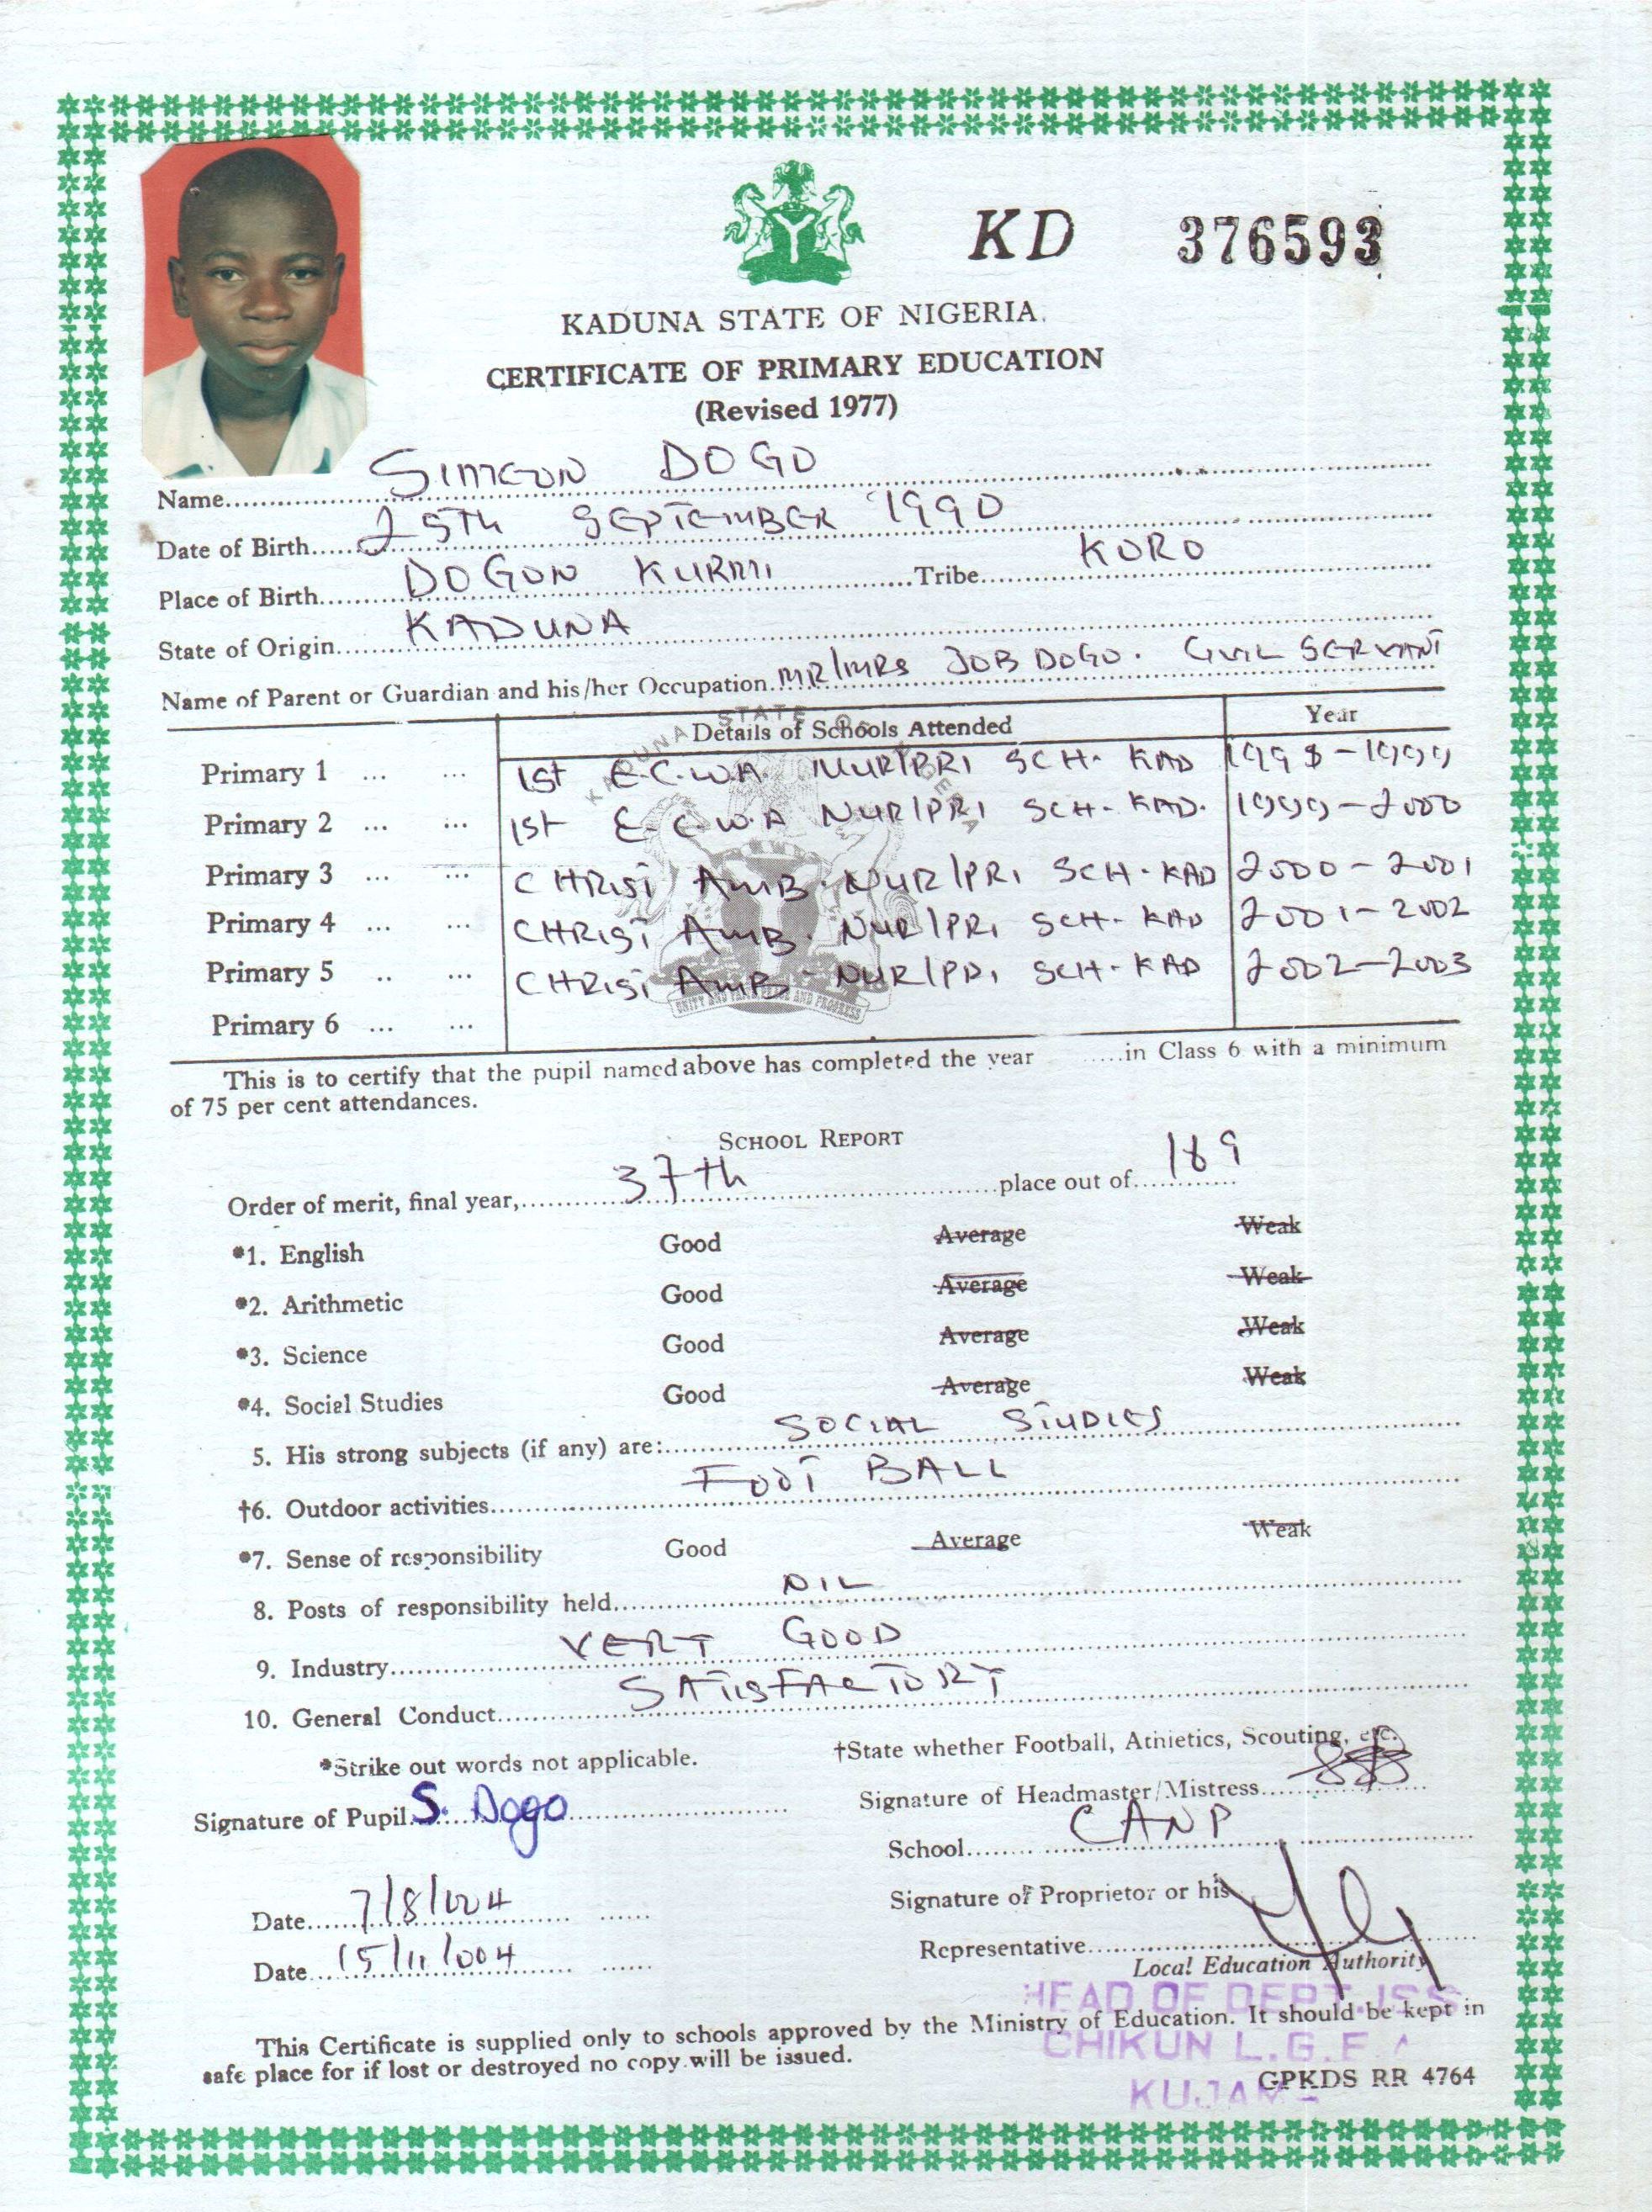 KD 376593
KADUNA STATE OF NIGERIA.
CERTIFICATE OF PRIMARY EDUCATION
(Revised 1977)
Name SIMEON DOGO
Date of Birth 25Th SEPTEMBER 1990
Place of Birth DOGON KURMI Tribe KORO
State of Origin KADUNA
Name of Parent or Guardian and his/her Occupation MR/MRS JOB DOGO. CIVIL SERVANT
Details of Schools Attended Year
Primary 1 ... ... 1st E.C.W.A. NUR/PRI SCH. KAD 1998-1999
Primary 2 ... ... 1st E.C.W.A NUR/PRI SCH. KAD. 1999-2000
Primary 3 ... ... CHRIST AMB. NUR/PRI SCH. KAD 2000-2001
Primary 4 ... ... CHRIST AMB. NUR/PRI SCH. KAD 2001-2002
Primary 5 .. ... CHRIST AMB. NUR/PRI SCH. KAD 2002-2003
Primary 6 ... ...
KADUNA STATE OF NIGERIA
UNITY AND FAITH PEACE AND PROGRESS
This is to certify that the pupil named above has completed the year ......in Class 6 with a minimum
of 75 per cent attendances.
SCHOOL REPORT
Order of merit, final year, 37th place out of 189
*1. English Good Average Weak
*2. Arithmetic Good Average Weak
*3. Science Good Average Weak
*4. Social Studies Good Average Weak
5. His strong subjects (if any) are: SOCIAL STUDIES
†6. Outdoor activities FOOT BALL
*7. Sense of responsibility Good Average Weak
8. Posts of responsibility held NIL
9. Industry VERY GOOD
10. General Conduct SATISFACTORY
*Strike out words not applicable. †State whether Football, Athletics, Scouting, etc.
Signature of Pupil S. Dogo Signature of Headmaster/Mistress
School CANP
Date 7/8/004 Signature of Proprietor or his
Date 15/11/004 Representative
Local Education Authority
HEAD OF DEPT. ISS
CHIKUN L.G.E.A
This Certificate is supplied only to schools approved by the Ministry of Education. It should be kept in
safe place for if lost or destroyed no copy will be issued.
GPKDS RR 4764